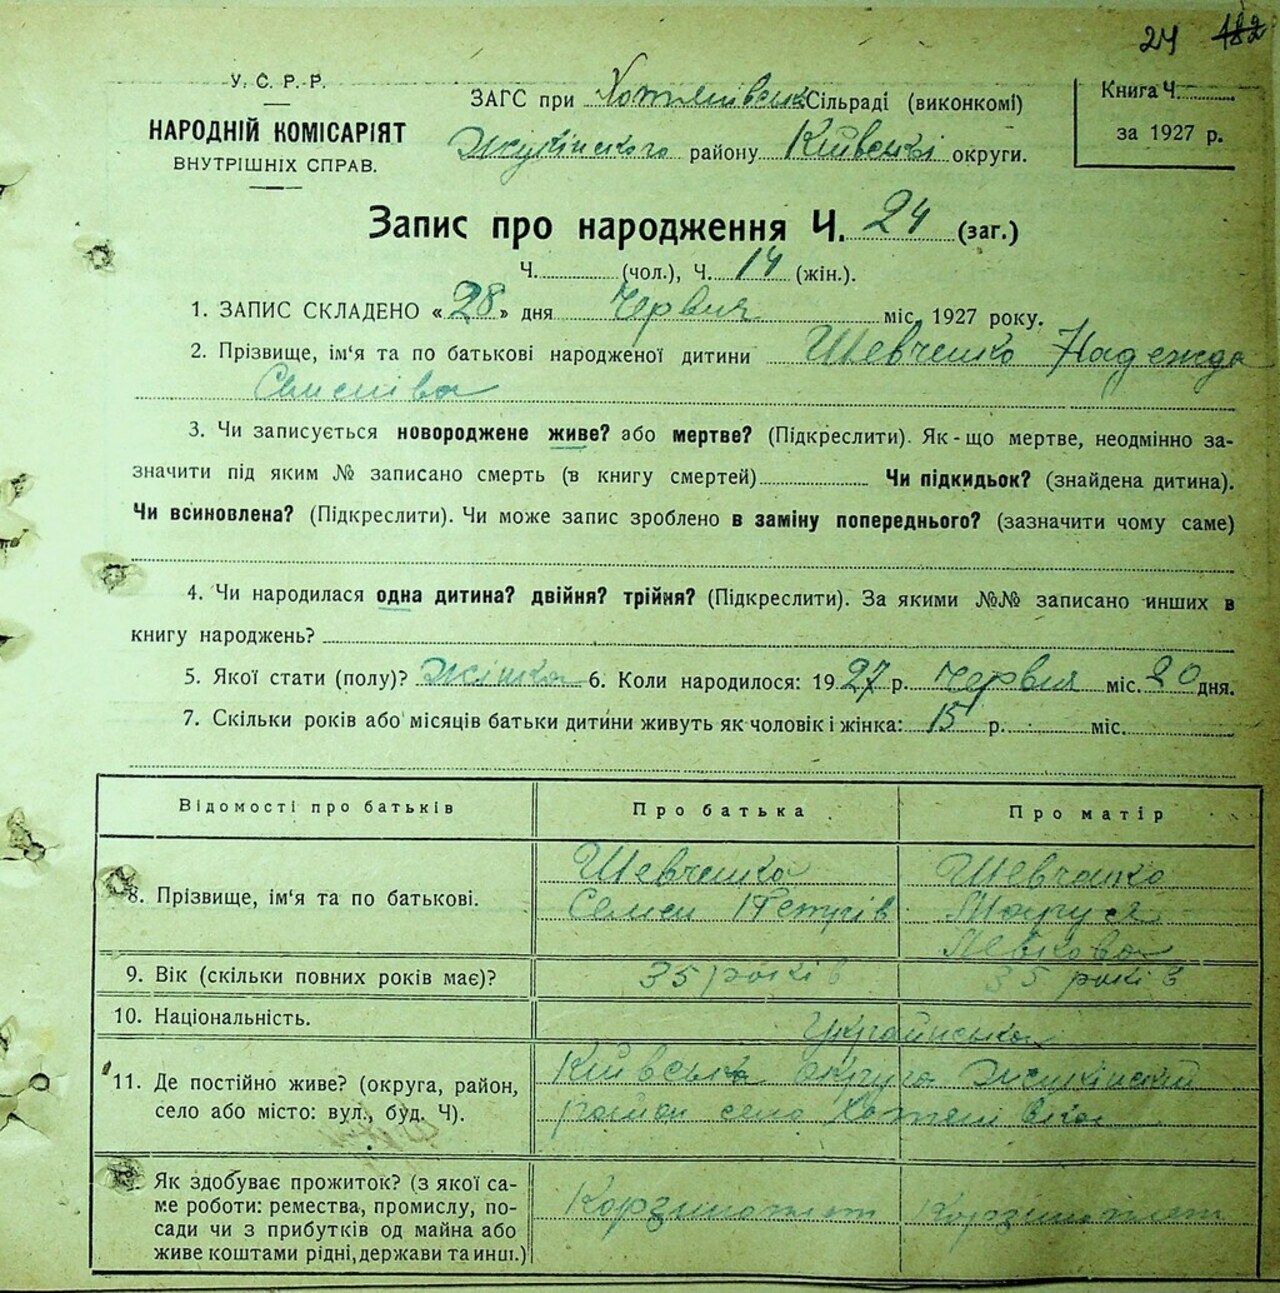 24 182
У. С. Р. Р.
НАРОДНІЙ КОМІСАРІЯТ
ВНУТРІШНІХ СПРАВ.
ЗАГС при Хотянівськ Сільраді (виконкомі)
Жукінського району Київські округи.
Книга Ч.
за 1927 р.
Запис про народження Ч. 24 (заг.)
Ч. (чол.), Ч. 14 (жін.).
1. ЗАПИС СКЛАДЕНО «28» дня Червня міс. 1927 року.
2. Прізвище, ім'я та по батькові народженої дитини Шевченко Надежда
Семенівна
3. Чи записується новороджене живе? або мертве? (Підкреслити). Як-що мертве, неодмінно за-
значити під яким № записано смерть (в книгу смертей) Чи підкидьок? (знайдена дитина).
Чи всиновлена? (Підкреслити). Чи може запис зроблено в заміну попереднього? (зазначити чому саме)
4. Чи народилася одна дитина? двійня? трійня? (Підкреслити). За якими №№ записано инших в
книгу народжень?
5. Якої стати (полу)? Жінка 6. Коли народилося: 1927 р. Червня міс. 20 дня.
7. Скільки років або місяців батьки дитини живуть як чоловік і жінка: 15 р. міс.
Відомості про батьків Про батька Про матір
8. Прізвище, ім'я та по батькові. Шевченко Семен Петрів Шевченко Маруся Левкова
9. Вік (скільки повних років має)? 35 років 35 років
10. Національність. Українська
11. Де постійно живе? (округа, район, Київська округа Жукінский
село або місто: вул., буд. Ч). район село Хотянівка
Як здобуває прожиток? (з якої са-
ме роботи: ремества, промислу, по- Корзиноплет Корзиноплет
сади чи з прибутків од майна або
живе коштами рідні, держави та инш.)